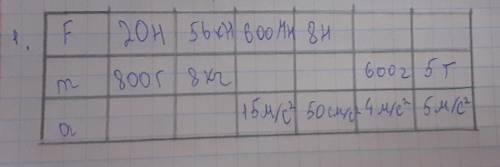 1. F 20Н 56кН 600МН 8Н
m 800г 8кг 600г 5т
a 15м/с² 50см/с² 4м/с² 5м/с²